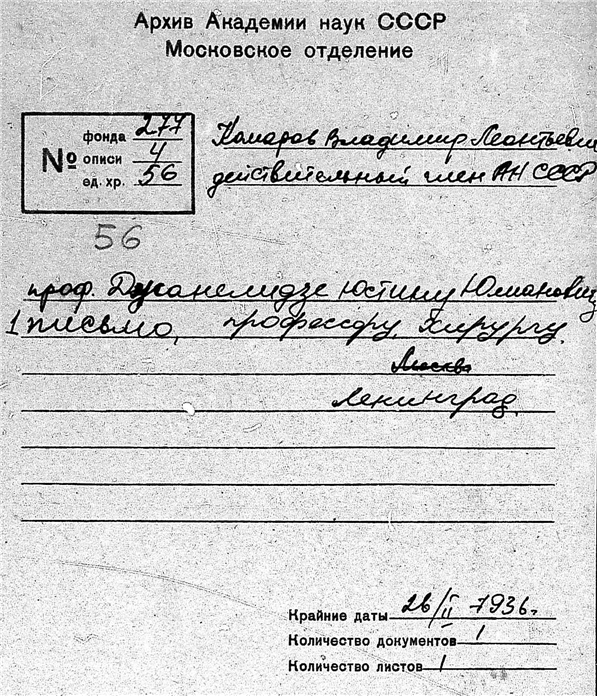 Архив Академии наук СССР
Московское отделение
№
фонда 277
описи 4
ед. хр. 56
Комаров Владимир Леонтьевич
действительный член АН СССР
56
проф. Джанелидзе Юстину Юлианович
1 письмо, профессору, хирургу.
Москва
Ленинград.
Крайние даты 26/II 1936 г.
Количество документов 1
Количество листов 1